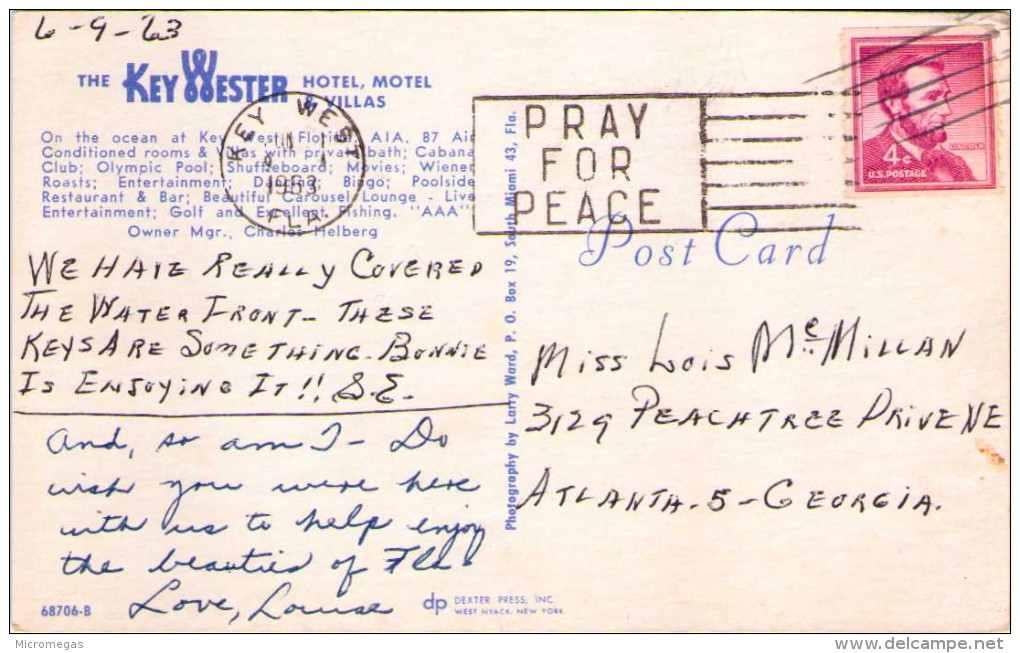 6-9-63
THE KEY WESTER HOTEL, MOTEL
& VILLAS
On the ocean at Key West, Florida, A1A, 87 Air
Conditioned rooms & Villas with private bath; Cabana
Club; Olympic Pool; Shuffleboard; Movies; Wiener
Roasts; Entertainment; Dancing; Bingo; Poolside
Restaurant & Bar; Beautiful Carousel Lounge - Live
Entertainment; Golf and Excellent Fishing. "AAA"
Owner Mgr., Charles Helberg
KEY WEST
1963
FLA
PRAY
FOR
PEACE
LINCOLN
4¢
U.S. POSTAGE
Post Card
WE HAVE REALLY COVERED
THE WATER FRONT- THESE
KEYS ARE SOMETHING. BONNIE
IS ENJOYING IT!! S.E.
And, so am I - Do
wish you were here
with us to help enjoy
the beauties of Fla.
Love, Louise
68706-B
Photography by Larry Ward, P. O. Box 19, South Miami 43, Fla.
MISS LOIS McMILLAN
3129 PEACHTREE DRIVE NE
ATLANTA-5-GEORGIA.
dp DEXTER PRESS, INC.
WEST NYACK, NEW YORK
Micromegas
www.delcampe.net